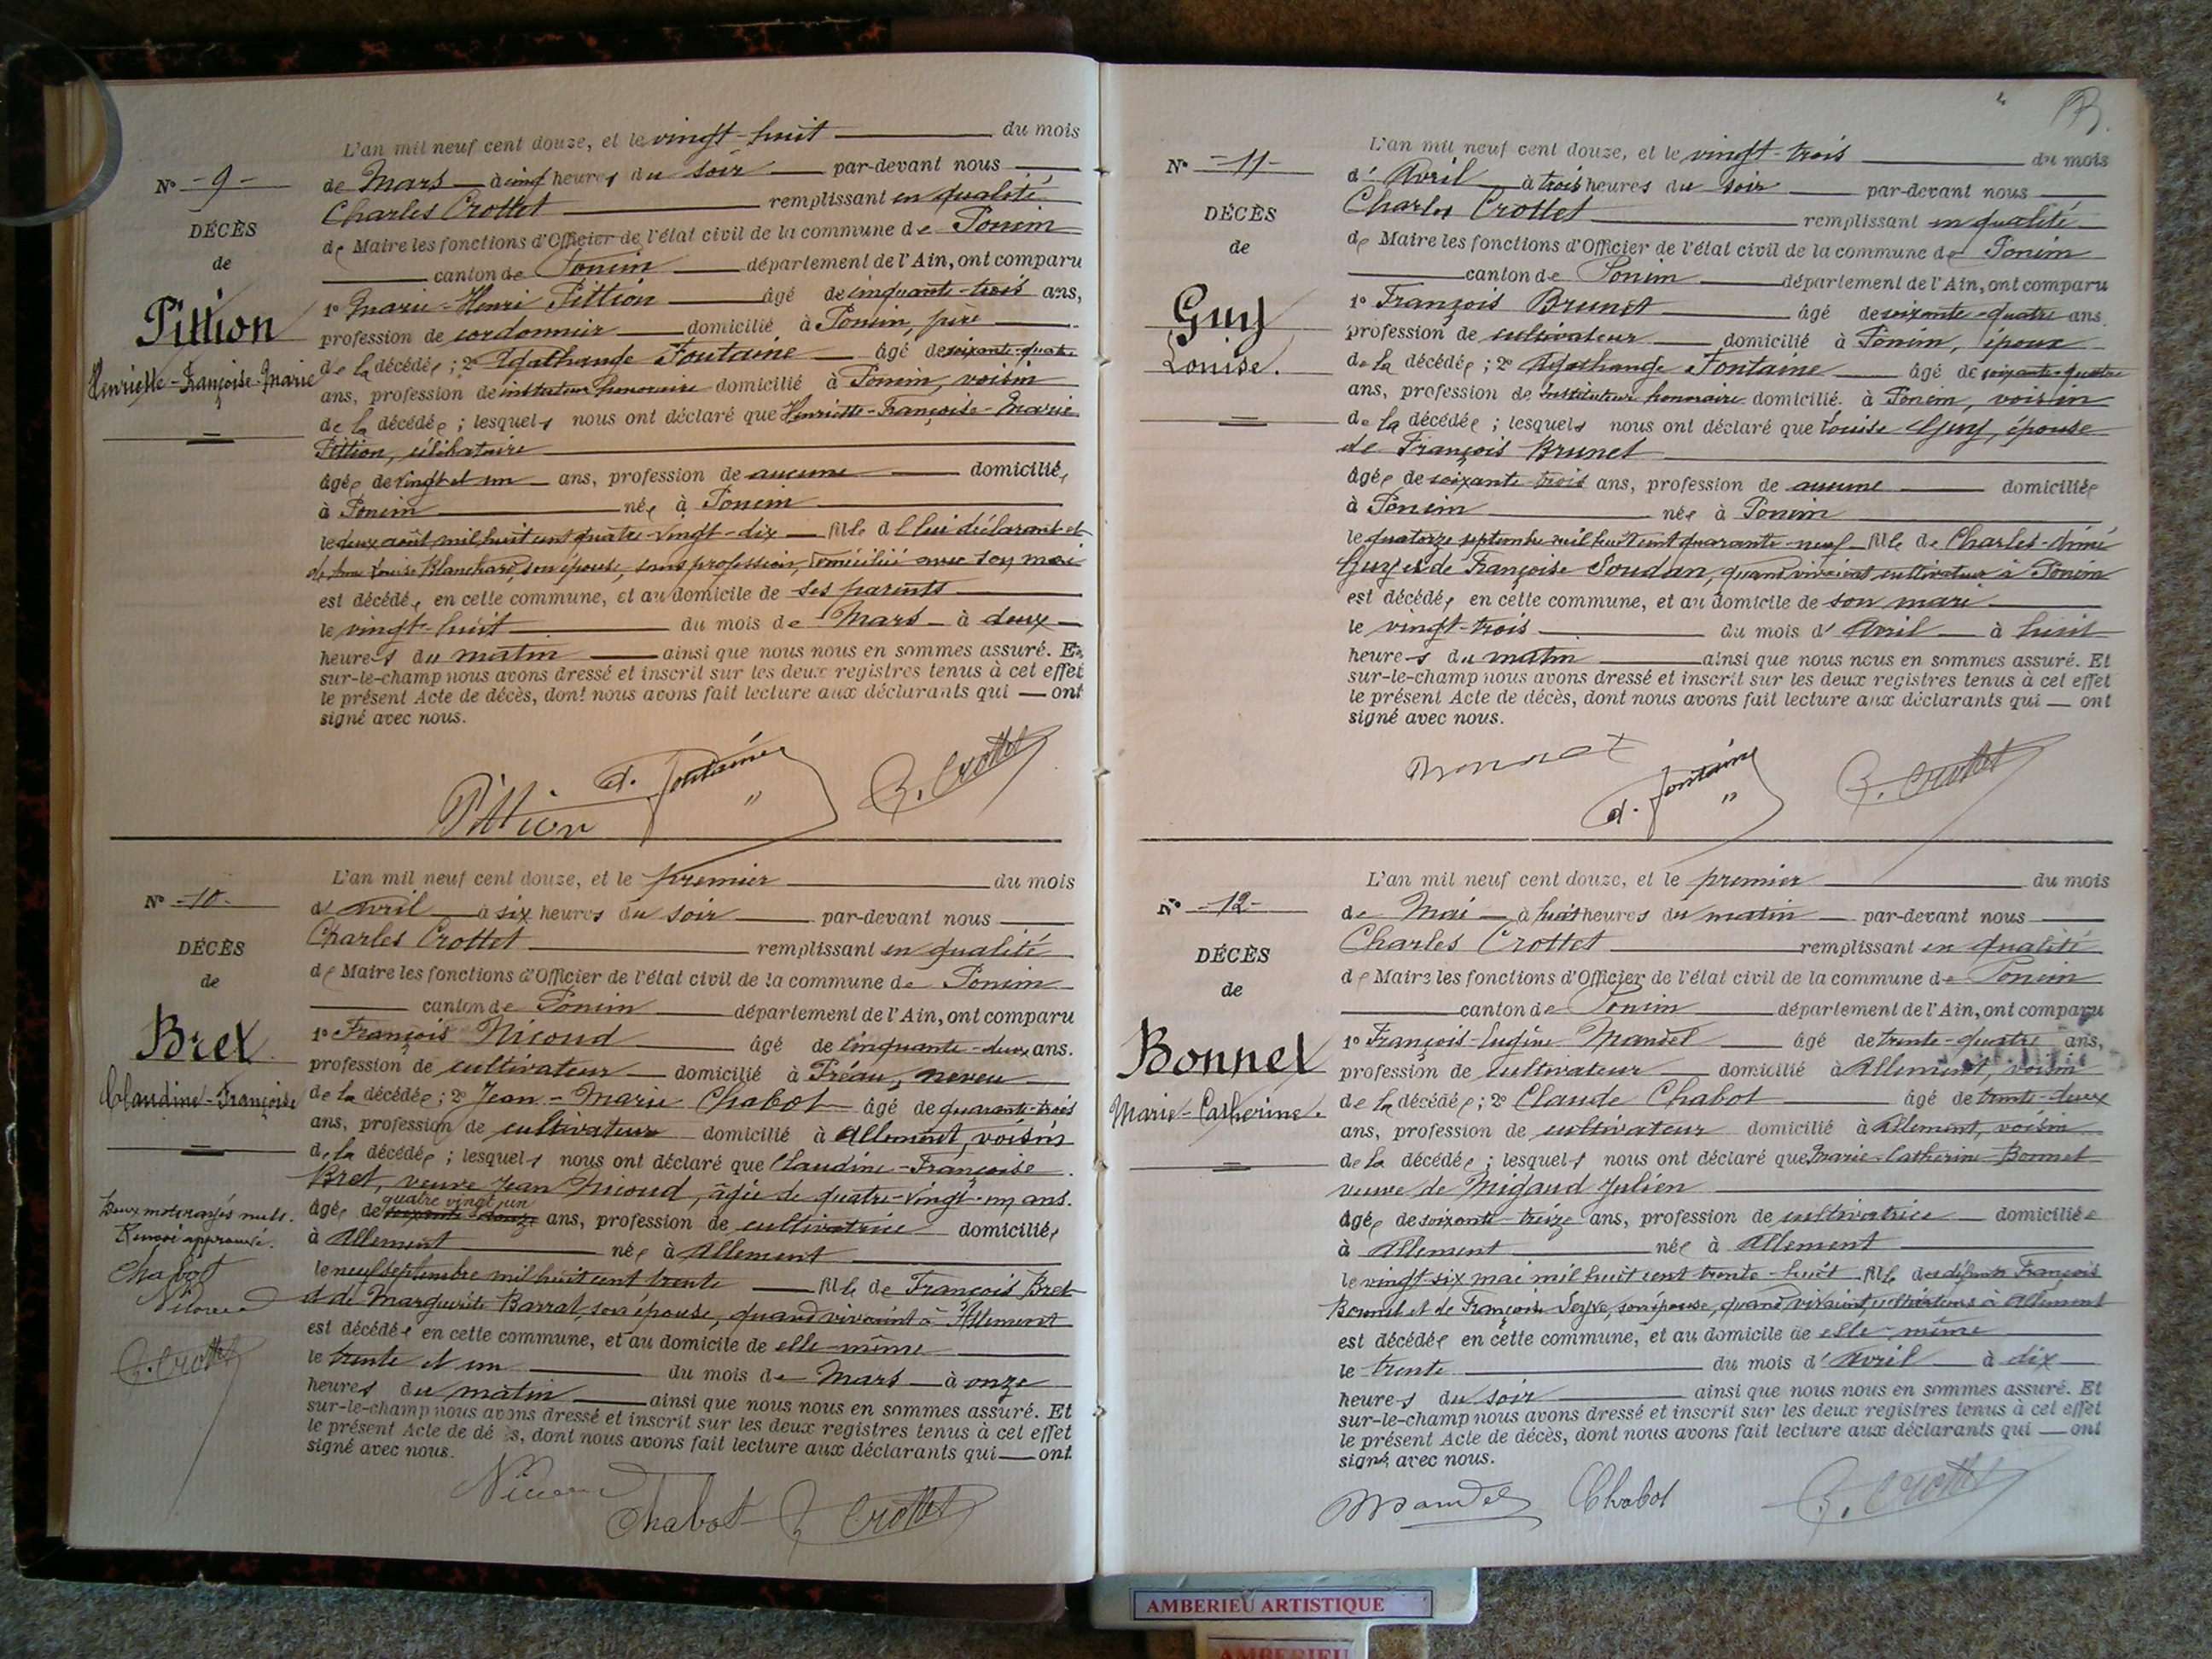 L'an mil neuf cent douze, et le vingt-huit du mois
N° - 9 -
de Mars à cinq heures du soir par-devant nous
Charles Crottet remplissant en qualité
DÉCÈS
de Maire les fonctions d'Officier de l'état civil de la commune de Poncin
de
canton de Poncin département de l'Ain, ont comparu
Pittion
1° Marie-Henri Pittion âgé de cinquante-trois ans,
profession de cordonnier domicilié à Poncin, père
Henriette-Françoise-Marie
de la décédée ; 2° Agathange Fontaine âgé de soixante-quatre
ans, profession de instituteur honoraire domicilié à Poncin, voisin
de la décédée ; lesquels nous ont déclaré que Henriette-Françoise-Marie
Pittion, célibataire
âgée de vingt et un ans, profession de aucune domiciliée
à Poncin née à Poncin
le deux août mil huit cent quatre-vingt-dix fille de lui déclarant et
de Louise Blanchard, son épouse, sans profession, domiciliée avec son mari
est décédée en cette commune, et au domicile de ses parents
le vingt-huit du mois de Mars à deux
heures du matin ainsi que nous nous en sommes assuré. Et,
sur-le-champ nous avons dressé et inscrit sur les deux registres tenus à cet effet
le présent Acte de décès, dont nous avons fait lecture aux déclarants qui ont
signé avec nous.
Pittion A. Fontaine C. Crottet
L'an mil neuf cent douze, et le premier du mois
N° - 10 -
d'avril à six heures du soir par-devant nous
Charles Crottet remplissant en qualité
DÉCÈS
de Maire les fonctions d'Officier de l'état civil de la commune de Poncin
de
canton de Poncin département de l'Ain, ont comparu
Bret
1° François Nicoud âgé de cinquante-deux ans.
profession de cultivateur domicilié à Préau, neveu
Claudine-Françoise
de la décédée ; 2° Jean-Marie Chabot âgé de quarante-trois
ans, profession de cultivateur domicilié à Allement, voisin
de la décédée ; lesquels nous ont déclaré que Claudine-Françoise
Bret, veuve Jean Nicoud, âgée de quatre-vingt-un ans.
quatre vingt un
Deux mots rayés nuls.
âgée de soixante-douze ans, profession de cultivatrice domiciliée
Renvoi approuvé.
à Allement née à Allement
Chabot
le neuf septembre mil huit cent trente fille de François Bret
Nicoud
et de Marguerite Barrat, son épouse, quand vivaient à Allement
est décédée en cette commune, et au domicile de elle-même
C. Crottet
le trente et un du mois de Mars à onze
heures du matin ainsi que nous nous en sommes assuré. Et
sur-le-champ nous avons dressé et inscrit sur les deux registres tenus à cet effet
le présent Acte de dé s, dont nous avons fait lecture aux déclarants qui ont
signé avec nous.
Nicoud Chabot C. Crottet
L'an mil neuf cent douze, et le vingt-trois du mois
N° - 11 -
d'Avril à trois heures du soir par-devant nous
Charles Crottet remplissant en qualité
DÉCÈS
de Maire les fonctions d'Officier de l'état civil de la commune de Poncin
de
canton de Poncin département de l'Ain, ont comparu
Guy
1° François Brunet âgé de soixante-quatre ans
profession de cultivateur domicilié à Poncin, époux
Louise.
de la décédée ; 2° Agathange Fontaine âgé de soixante-quatre
ans, profession de Instituteur honoraire domicilié à Poncin, voisin
de la décédée ; lesquels nous ont déclaré que Louise Guy, épouse
de François Brunet
âgée de soixante-trois ans, profession de aucune domiciliée
à Poncin née à Poncin
le quatorze septembre mil huit cent quarante-neuf fille de Charles-Aimé
Guy et de Françoise Soudan, quand vivaient cultivateurs à Poncin
est décédée en cette commune, et au domicile de son mari
le vingt-trois du mois d'Avril à huit
heures du matin ainsi que nous nous en sommes assuré. Et
sur-le-champ nous avons dressé et inscrit sur les deux registres tenus à cet effet
le présent Acte de décès, dont nous avons fait lecture aux déclarants qui ont
signé avec nous.
A. Fontaine C. Crottet
L'an mil neuf cent douze, et le premier du mois
N° - 12 -
de Mai à huit heures du matin par-devant nous
Charles Crottet remplissant en qualité
DÉCÈS
de Maire les fonctions d'Officier de l'état civil de la commune de Poncin
de
canton de Poncin département de l'Ain, ont comparu
Bonnet
1° François-Eugène Mandel âgé de trente-quatre ans,
profession de cultivateur domicilié à Allement, voisin
Marie-Catherine.
de la décédée ; 2° Claude Chabot âgé de trente-deux
ans, profession de cultivateur domicilié à Allement, voisin
de la décédée ; lesquels nous ont déclaré que Marie-Catherine Bonnet
veuve de Migaud Julien
âgée de soixante-treize ans, profession de cultivatrice domiciliée
à Allement née à Allement
le vingt-six mai mil huit cent trente-huit fille de défunts François
Bonnet et de Françoise Seyve, son épouse, quand vivaient cultivateurs à Allement
est décédée en cette commune, et au domicile de elle-même
le trente du mois d'Avril à dix
heures du soir ainsi que nous nous en sommes assuré. Et
sur-le-champ nous avons dressé et inscrit sur les deux registres tenus à cet effet
le présent Acte de décès, dont nous avons fait lecture aux déclarants qui ont
signé avec nous.
Mandel Chabot C. Crottet
AMBERIEU ARTISTIQUE
AMBERIEU